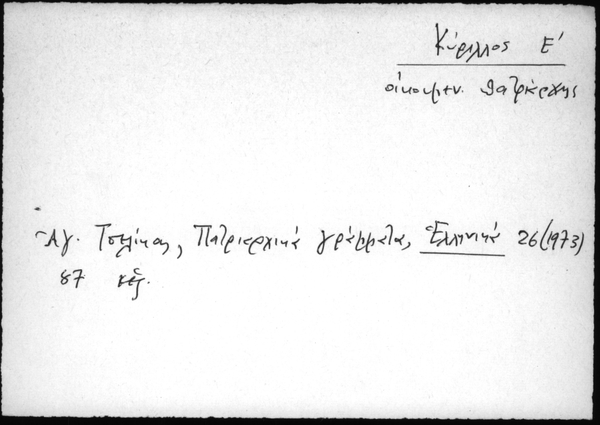 Κύριλλος Ε'
οἰκουμεν. πατριάρχης
Ἀγ. Τσελίκας, Πατριαρχικά γράμματα, Ἑλληνικά 26 (1973)
87 κἑξ.